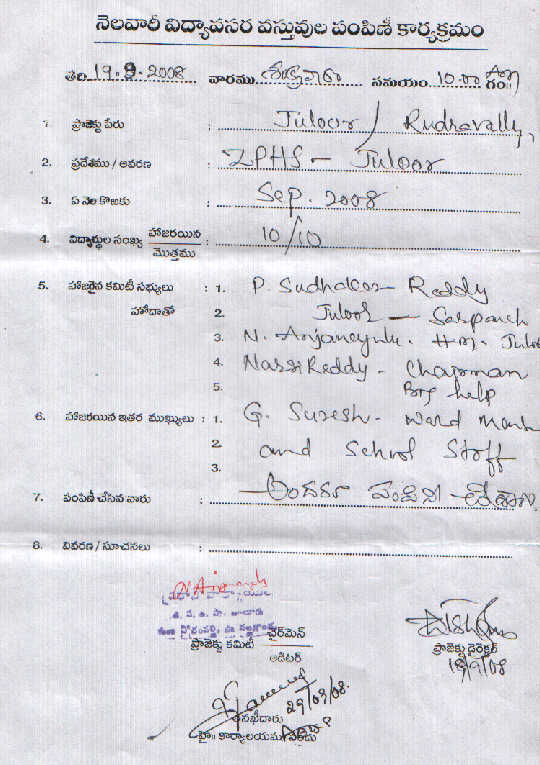 నెలవారీ విద్యావసర వస్తువుల పంపిణీ కార్యక్రమం
తేది 19.9.2008 వారము శుక్రవారం సమయం 10.00 గం॥
1. ప్రాజెక్టు పేరు : Juloor / Rudravally,
2. ప్రదేశము / ఆవరణ : ZPHS - Juloor
3. ఏ నెల కొఱకు : Sep. 2008
4. విద్యార్థుల సంఖ్య హాజరయిన : 10/10
మొత్తము
5. హాజరైన కమిటీ సభ్యులు : 1. P. Sudhakar Reddy
హోదాతో 2. Juloor - Sarpanch
3. N. Anjaneyulu. H.M. Juloor
4. NarsiReddy - Chairman
5. help
6. హాజరయిన ఇతర ముఖ్యులు : 1. G. Suresh - ward
2. and School Staff
3.
7. పంపిణీ చేసిన వారు : అందరూ పంపిణీ చేశారు
8. వివరణ / సూచనలు :
చైర్మెన్
ప్రాజెక్టు కమిటీ
ఆడిటర్
ప్రాజెక్టు డైరెక్టర్
19/9/08
29/09/08.
తనిఖీదారు